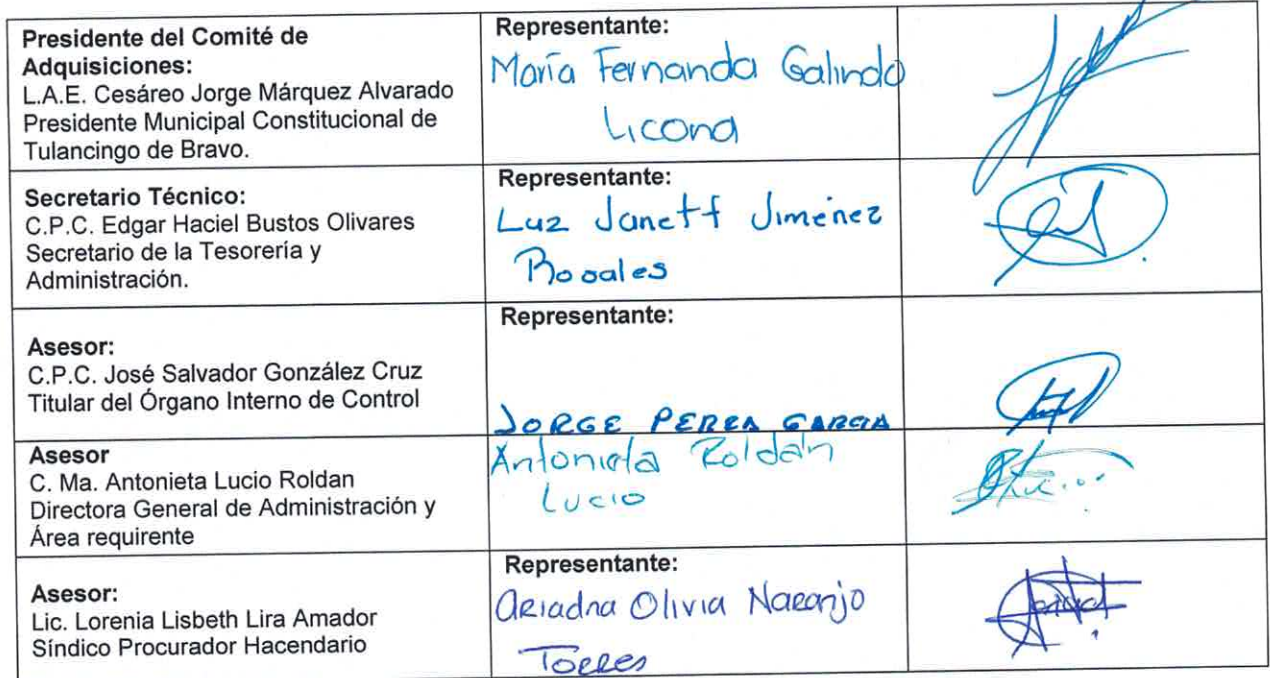 Presidente del Comité de
Adquisiciones:
L.A.E. Cesáreo Jorge Márquez Alvarado
Presidente Municipal Constitucional de
Tulancingo de Bravo.
Representante:
María Fernanda Galindo
Licona
Secretario Técnico:
C.P.C. Edgar Haciel Bustos Olivares
Secretario de la Tesorería y
Administración.
Representante:
Luz Janett Jimenez
Rosales
Asesor:
C.P.C. José Salvador González Cruz
Titular del Órgano Interno de Control
Representante:
JORGE PEREA GARCIA
Asesor
C. Ma. Antonieta Lucio Roldan
Directora General de Administración y
Área requirente
Antonieta Roldán
Lucio
Asesor:
Lic. Lorenia Lisbeth Lira Amador
Síndico Procurador Hacendario
Representante:
Ariadna Olivia Naranjo
Torres